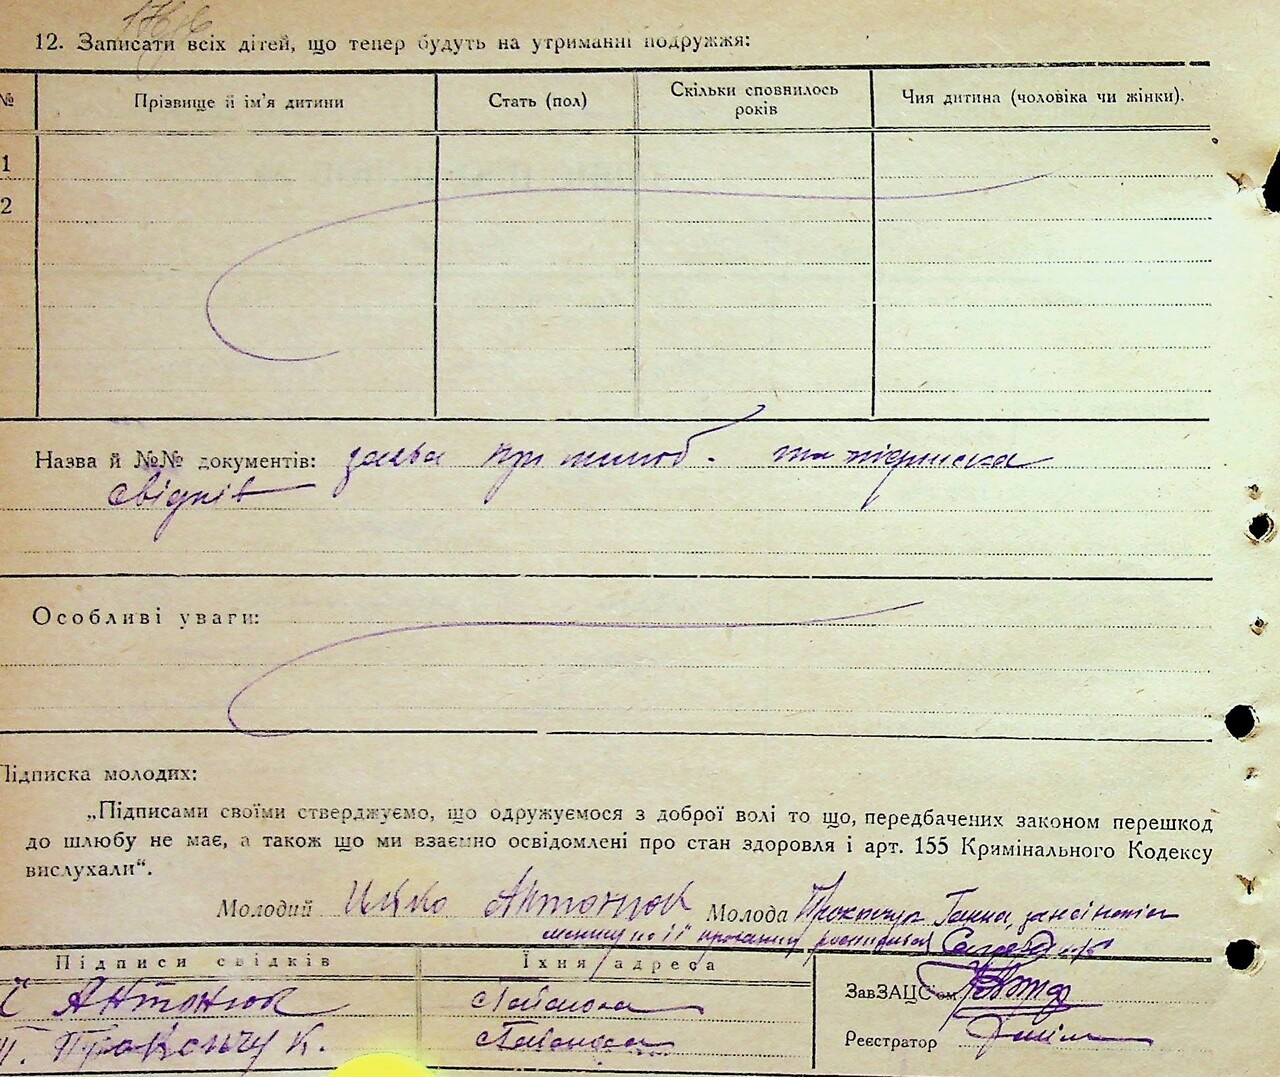 12. Записати всіх дітей, що тепер будуть на утриманні подружжя:
№ Прізвище й ім'я дитини Стать (пол) Скільки сповнилось років Чия дитина (чоловіка чи жінки).
1
2
Назва й №№ документів: заява про шлюб. та підписка
свідків
Особливі уваги:
Підписка молодих:
„Підписами своїми стверджуємо, що одружуємося з доброї волі то що, передбачених законом перешкод
до шлюбу не має, а також що ми взаємно освідомлені про стан здоровля і арт. 155 Кримінального Кодексу
вислухали“.
Молодий Ілько Антонюк Молода Прокопчук Ганна,
по її проханню розписався
Підписи свідків Їхня адреса
Антонюк
ЗавЗАЦС'ом
Т. Прокопчук.
Реєстратор